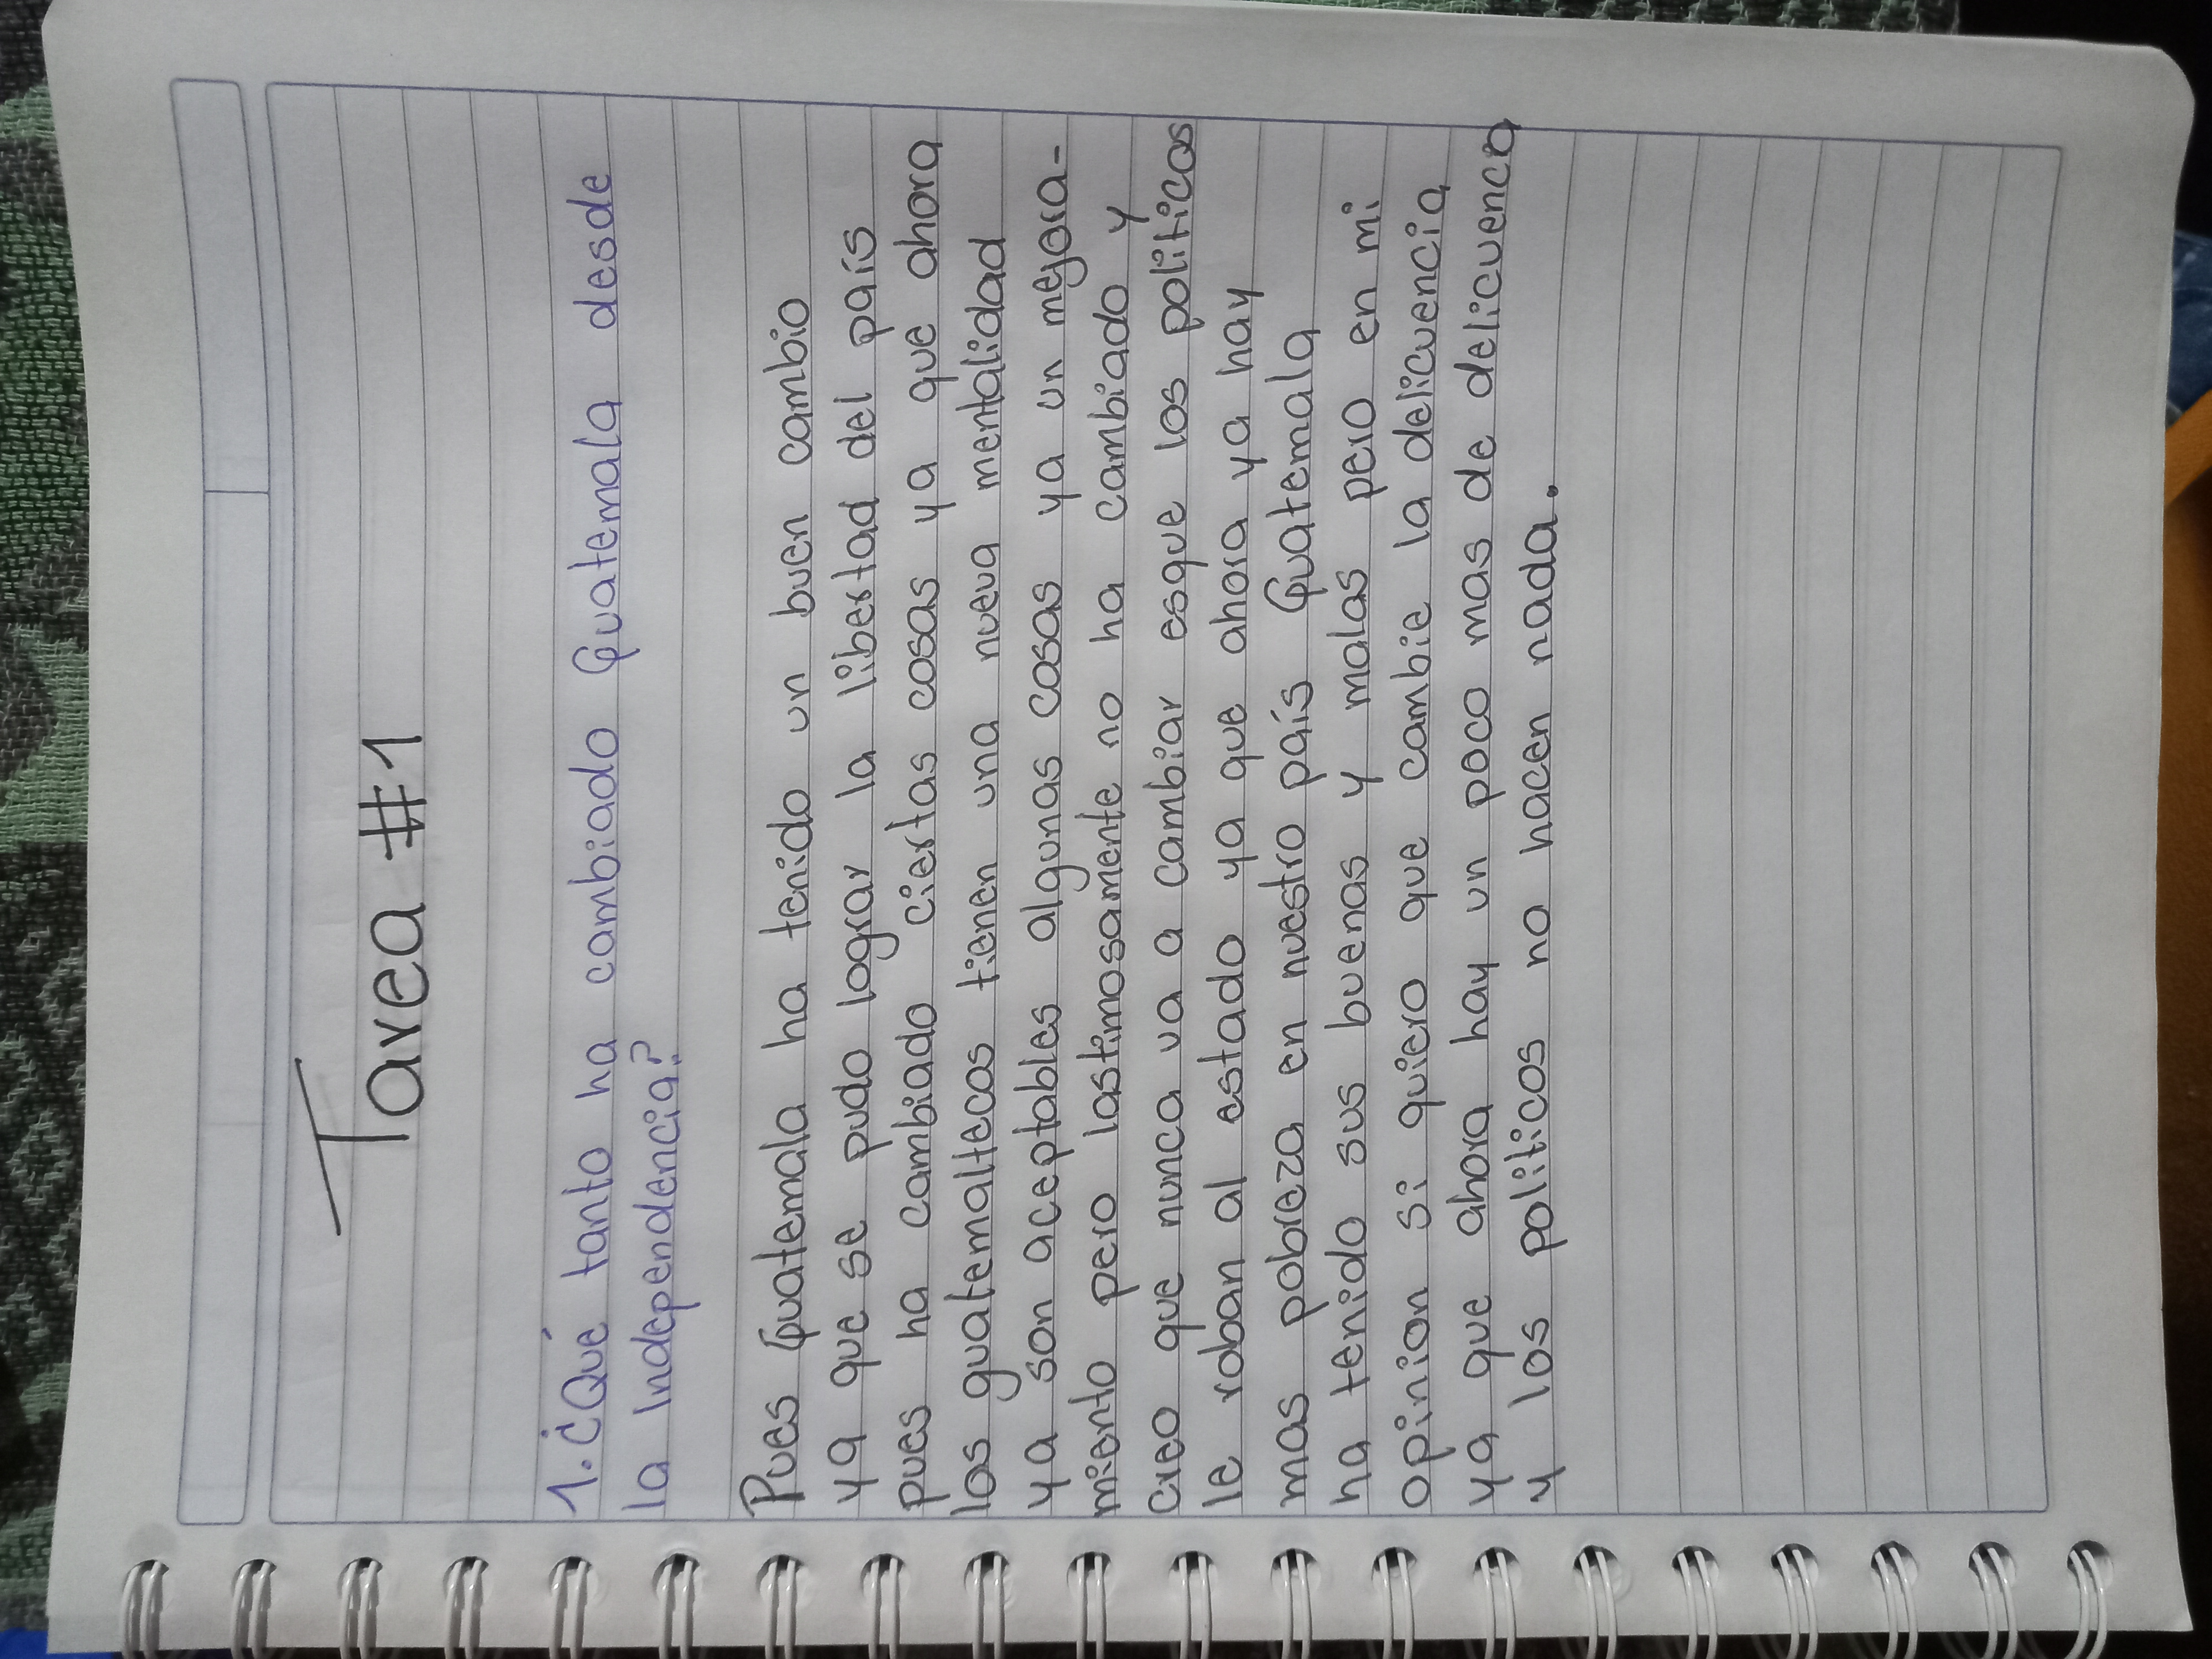 Tarea #1
1. ¿Qué tanto ha cambiado Guatemala desde
la Independencia?
Pues Guatemala ha tenido un buen cambio
ya que se pudo lograr la libertad del país
pues ha cambiado ciertas cosas ya que ahora
los guatemaltecos tienen una nueva mentalidad
ya son aceptables algunas cosas ya un mejora-
miento pero lastimosamente no ha cambiado y
creo que nunca va a cambiar esque los politicos
le roban al estado ya que ahora ya hay
mas pobreza en nuestro país Guatemala
ha tenido sus buenas y malas pero en mi
opinion si quiero que cambie la delicuencia
ya que ahora hay un poco mas de delicuenca
y los politicos no hacen nada.